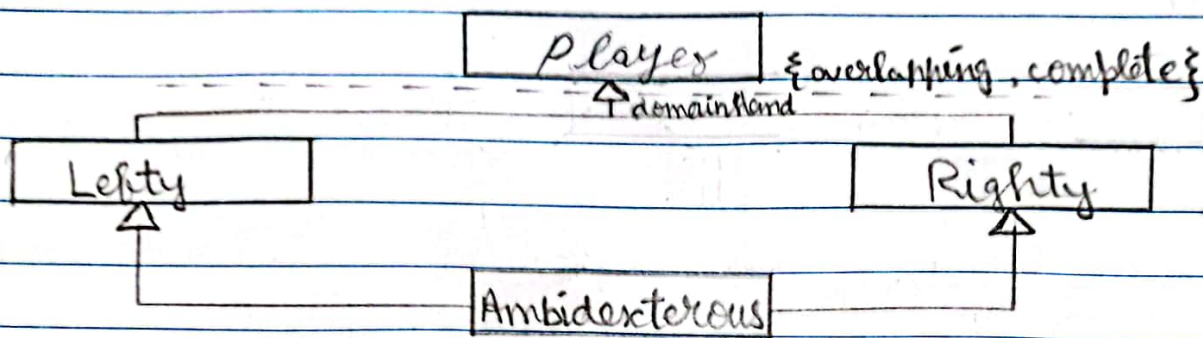 Player
{overlapping, complete}
domainHand
Lefty
Righty
Ambidexterous